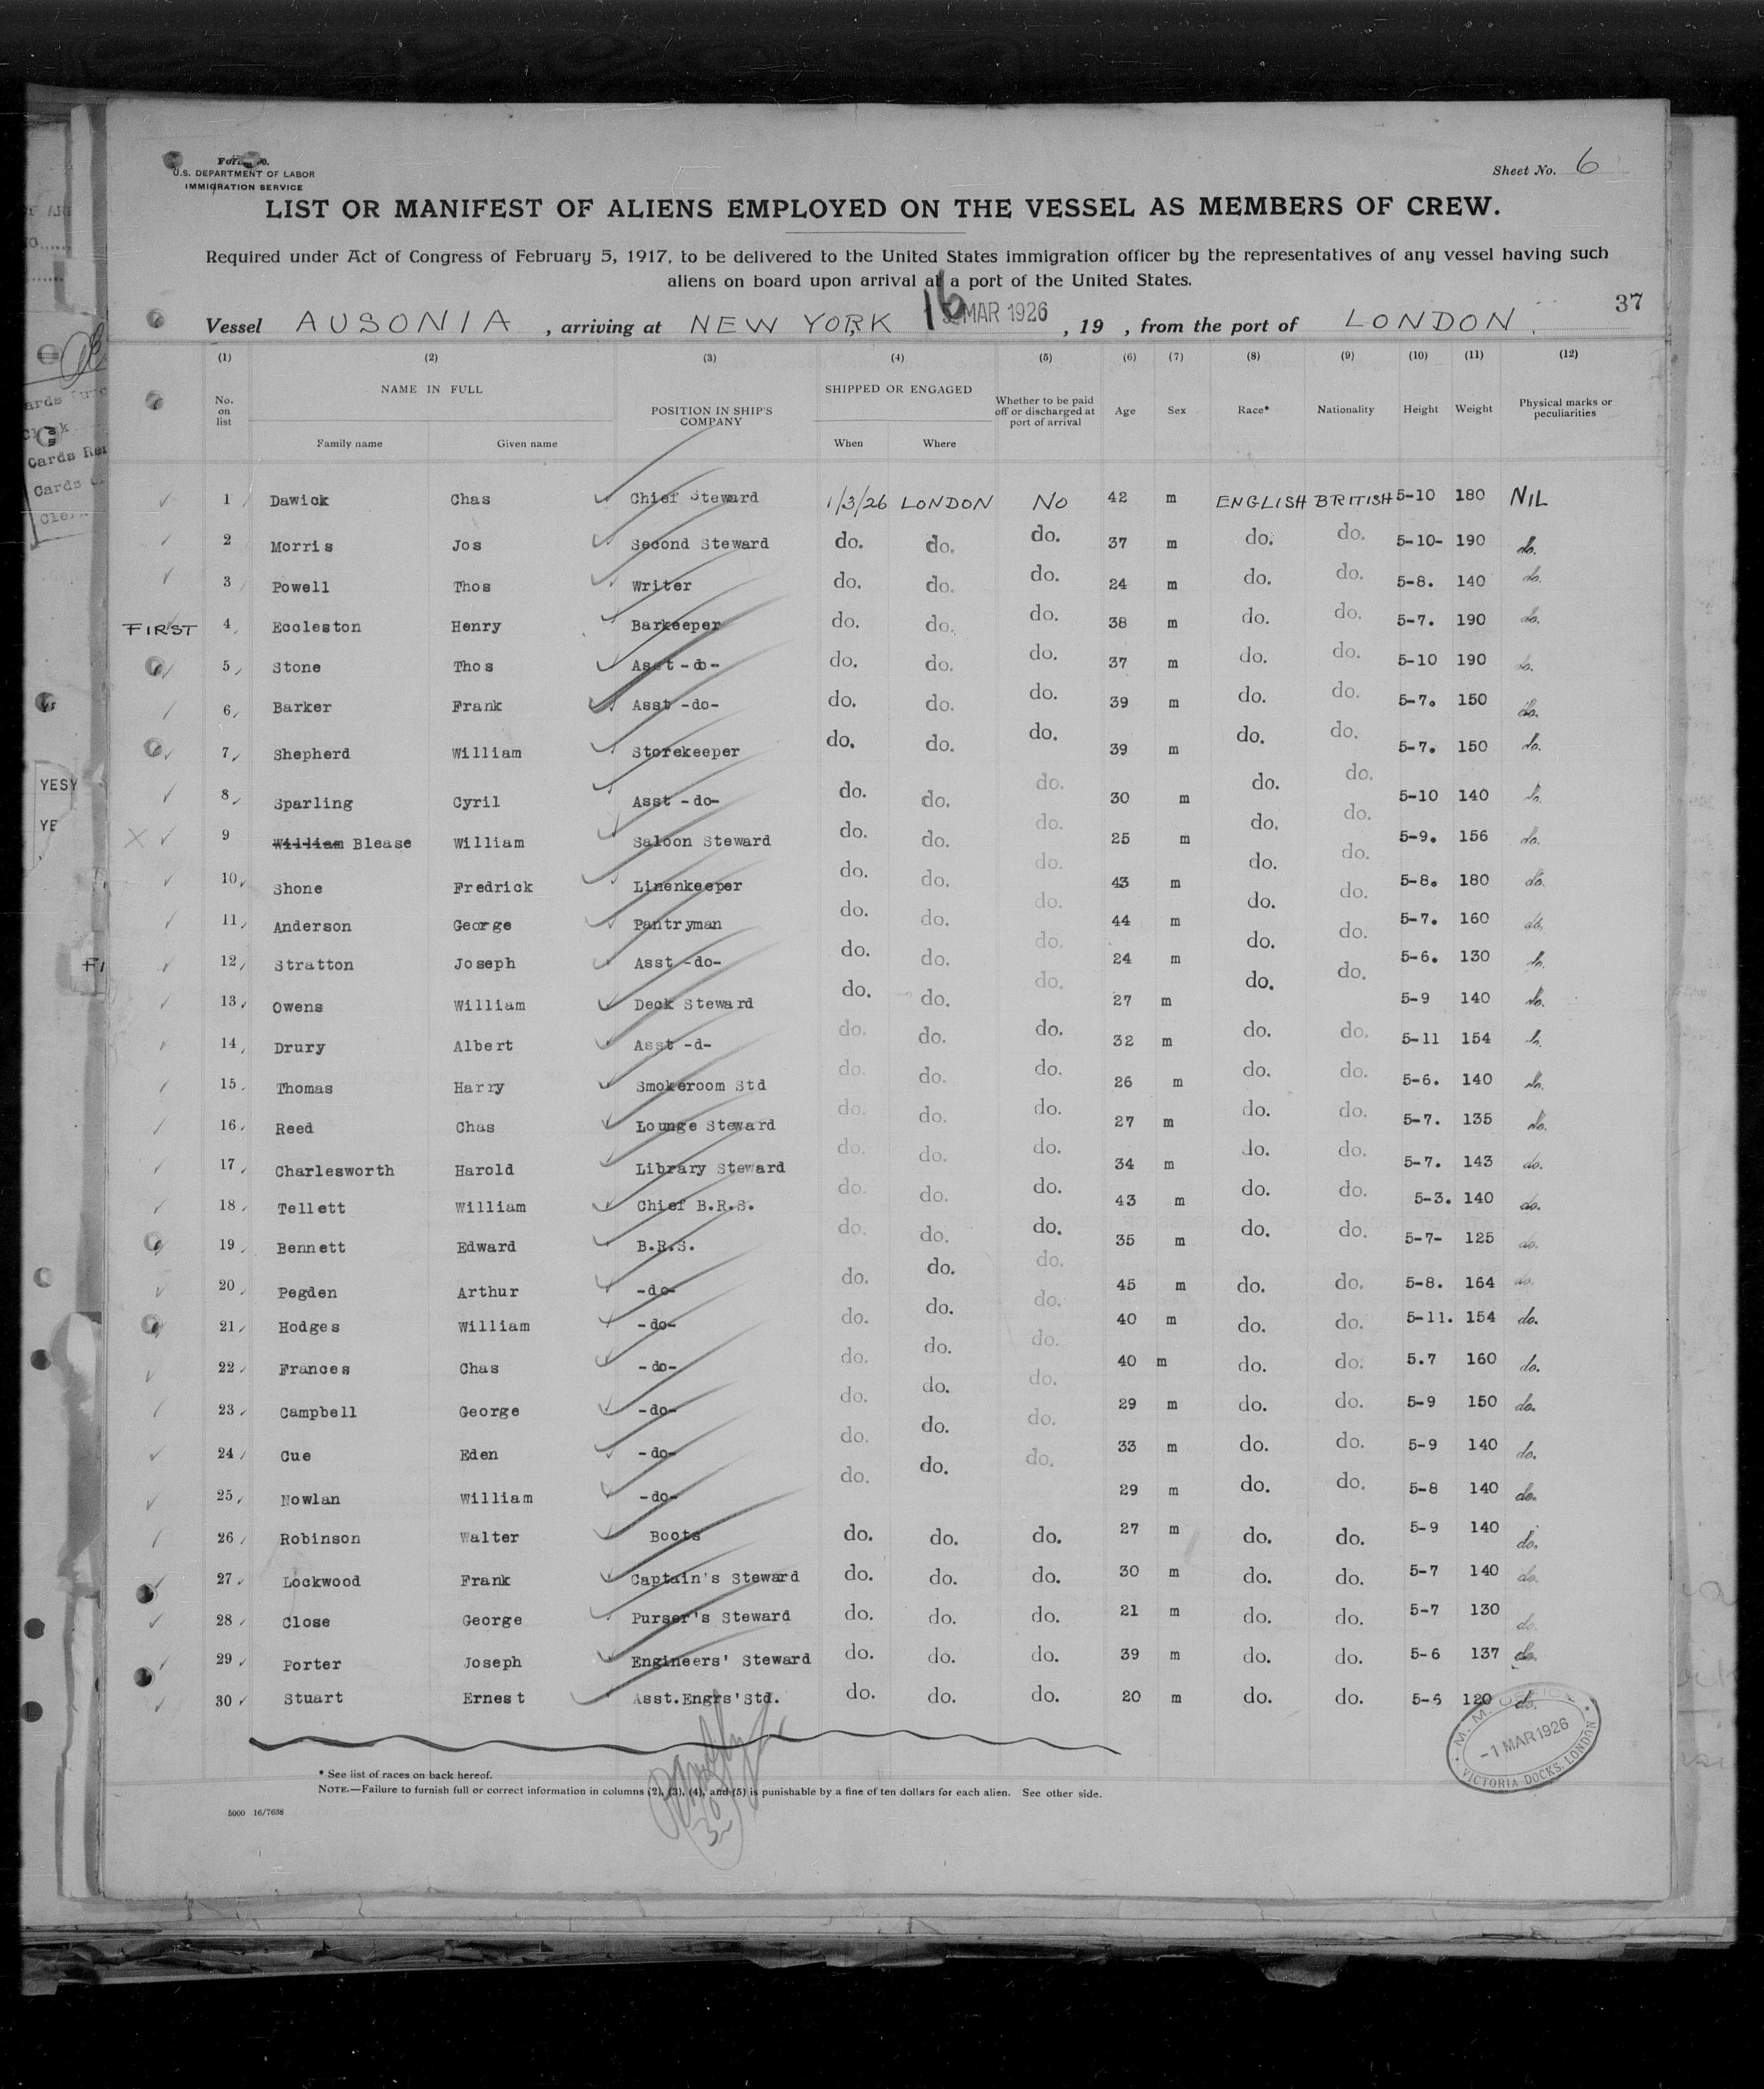 U.S. DEPARTMENT OF LABOR
IMMIGRATION SERVICE
Sheet No. 6
LIST OR MANIFEST OF ALIENS EMPLOYED ON THE VESSEL AS MEMBERS OF CREW.
Required under Act of Congress of February 5, 1917, to be delivered to the United States immigration officer by the representatives of any vessel having such
aliens on board upon arrival at a port of the United States.
37
Vessel AUSONIA, arriving at NEW YORK 16 MAR 1926, 19 , from the port of LONDON
(1) (2) (3) (4) (5) (6) (7) (8) (9) (10) (11) (12)
No. on list NAME IN FULL Family name Given name POSITION IN SHIP'S COMPANY SHIPPED OR ENGAGED When Where Whether to be paid off or discharged at port of arrival Age Sex Race* Nationality Height Weight Physical marks or peculiarities
1 Dawick Chas Chief Steward 1/3/26 LONDON NO 42 m ENGLISH BRITISH 5-10 180 NIL
2 Morris Jos Second Steward do. do. do. 37 m do. do. 5-10- 190 do.
3 Powell Thos Writer do. do. do. 24 m do. do. 5-8. 140 do.
FIRST 4 Eccleston Henry Barkeeper do. do. do. 38 m do. do. 5-7. 190 do.
5 Stone Thos Asst -do- do. do. do. 37 m do. do. 5-10 190 do.
6 Barker Frank Asst -do- do. do. do. 39 m do. do. 5-7. 150 do.
7 Shepherd William Storekeeper do. do. do. 39 m do. do. 5-7. 150 do.
8 Sparling Cyril Asst -do- do. do. do. 30 m do. do. 5-10 140 do.
9 William Blease William Saloon Steward do. do. do. 25 m do. do. 5-9. 156 do.
10 Shone Fredrick Linenkeeper do. do. do. 43 m do. do. 5-8. 180 do.
11 Anderson George Pantryman do. do. do. 44 m do. do. 5-7. 160 do.
12 Stratton Joseph Asst -do- do. do. do. 24 m do. do. 5-6. 130 do.
13 Owens William Deck Steward do. do. do. 27 m do. do. 5-9 140 do.
14 Drury Albert Asst -d- do. do. do. 32 m do. do. 5-11 154 do.
15 Thomas Harry Smokeroom Std do. do. do. 26 m do. do. 5-6. 140 do.
16 Reed Chas Lounge Steward do. do. do. 27 m do. do. 5-7. 135 do.
17 Charlesworth Harold Library Steward do. do. do. 34 m do. do. 5-7. 143 do.
18 Tellett William Chief B.R.S. do. do. do. 43 m do. do. 5-3. 140 do.
19 Bennett Edward B.R.S. do. do. do. 35 m do. do. 5-7- 125 do.
20 Pegden Arthur -do- do. do. do. 45 m do. do. 5-8. 164 do.
21 Hodges William -do- do. do. do. 40 m do. do. 5-11. 154 do.
22 Frances Chas -do- do. do. do. 40 m do. do. 5.7 160 do.
23 Campbell George -do- do. do. do. 29 m do. do. 5-9 150 do.
24 Cue Eden -do- do. do. do. 33 m do. do. 5-9 140 do.
25 Nowlan William -do- do. do. do. 29 m do. do. 5-8 140 do.
26 Robinson Walter Boots do. do. do. 27 m do. do. 5-9 140 do.
27 Lockwood Frank Captain's Steward do. do. do. 30 m do. do. 5-7 140 do.
28 Close George Purser's Steward do. do. do. 21 m do. do. 5-7 130 do.
29 Porter Joseph Engineers' Steward do. do. do. 39 m do. do. 5-6 137 do.
30 Stuart Ernest Asst.Engrs'Std. do. do. do. 20 m do. do. 5-6 120 do.
M. M. OFFICE
-1 MAR 1926
VICTORIA DOCKS, LONDON
* See list of races on back hereof.
NOTE.—Failure to furnish full or correct information in columns (2), (3), (4), and (5) is punishable by a fine of ten dollars for each alien. See other side.
5000 16/7638